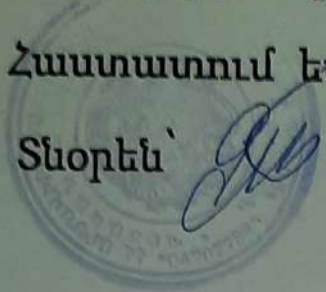 Հաստատում ե
Տնօրեն՝